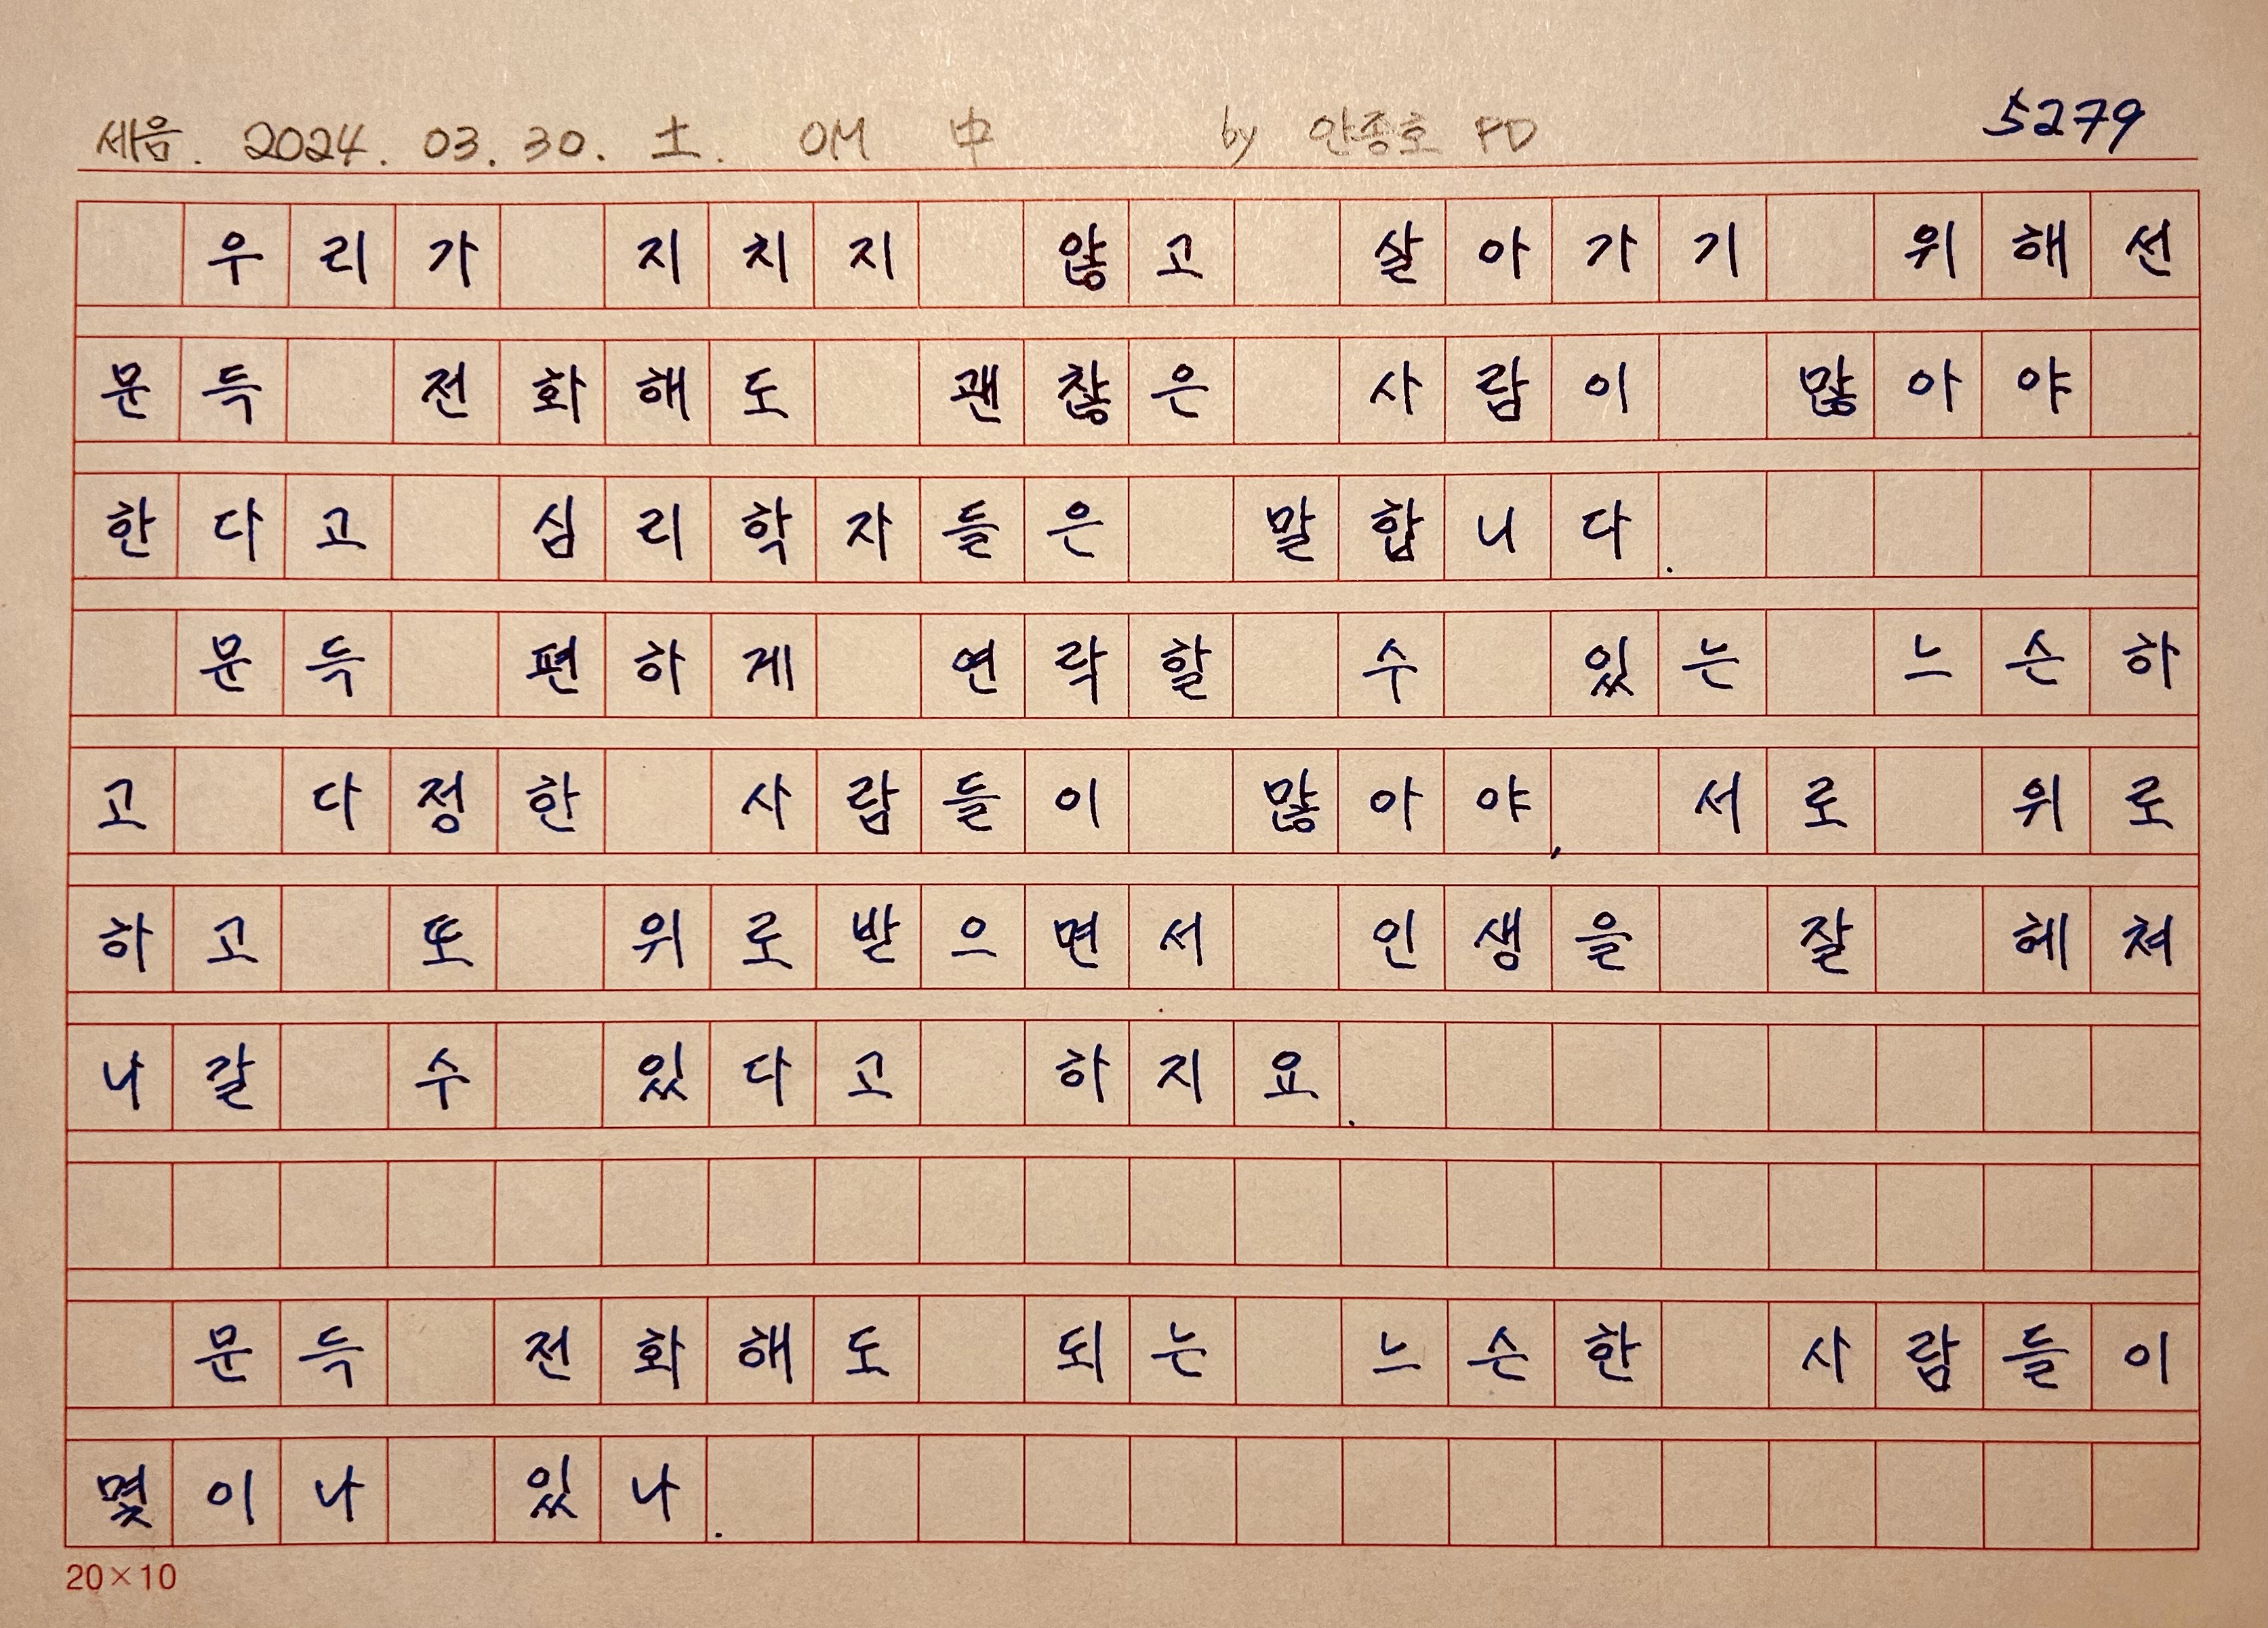 세음. 2024. 03. 30. 土. OM 中 by 안종호 PD 5279
우리가 지치지 않고 살아가기 위해선
문득 전화해도 괜찮은 사람이 많아야
한다고 심리학자들은 말합니다.
문득 편하게 연락할 수 있는 느슨하
고 다정한 사람들이 많아야, 서로 위로
하고 또 위로받으면서 인생을 잘 헤쳐
나갈 수 있다고 하지요.
문득 전화해도 되는 느슨한 사람들이
몇이나 있나.
20×10